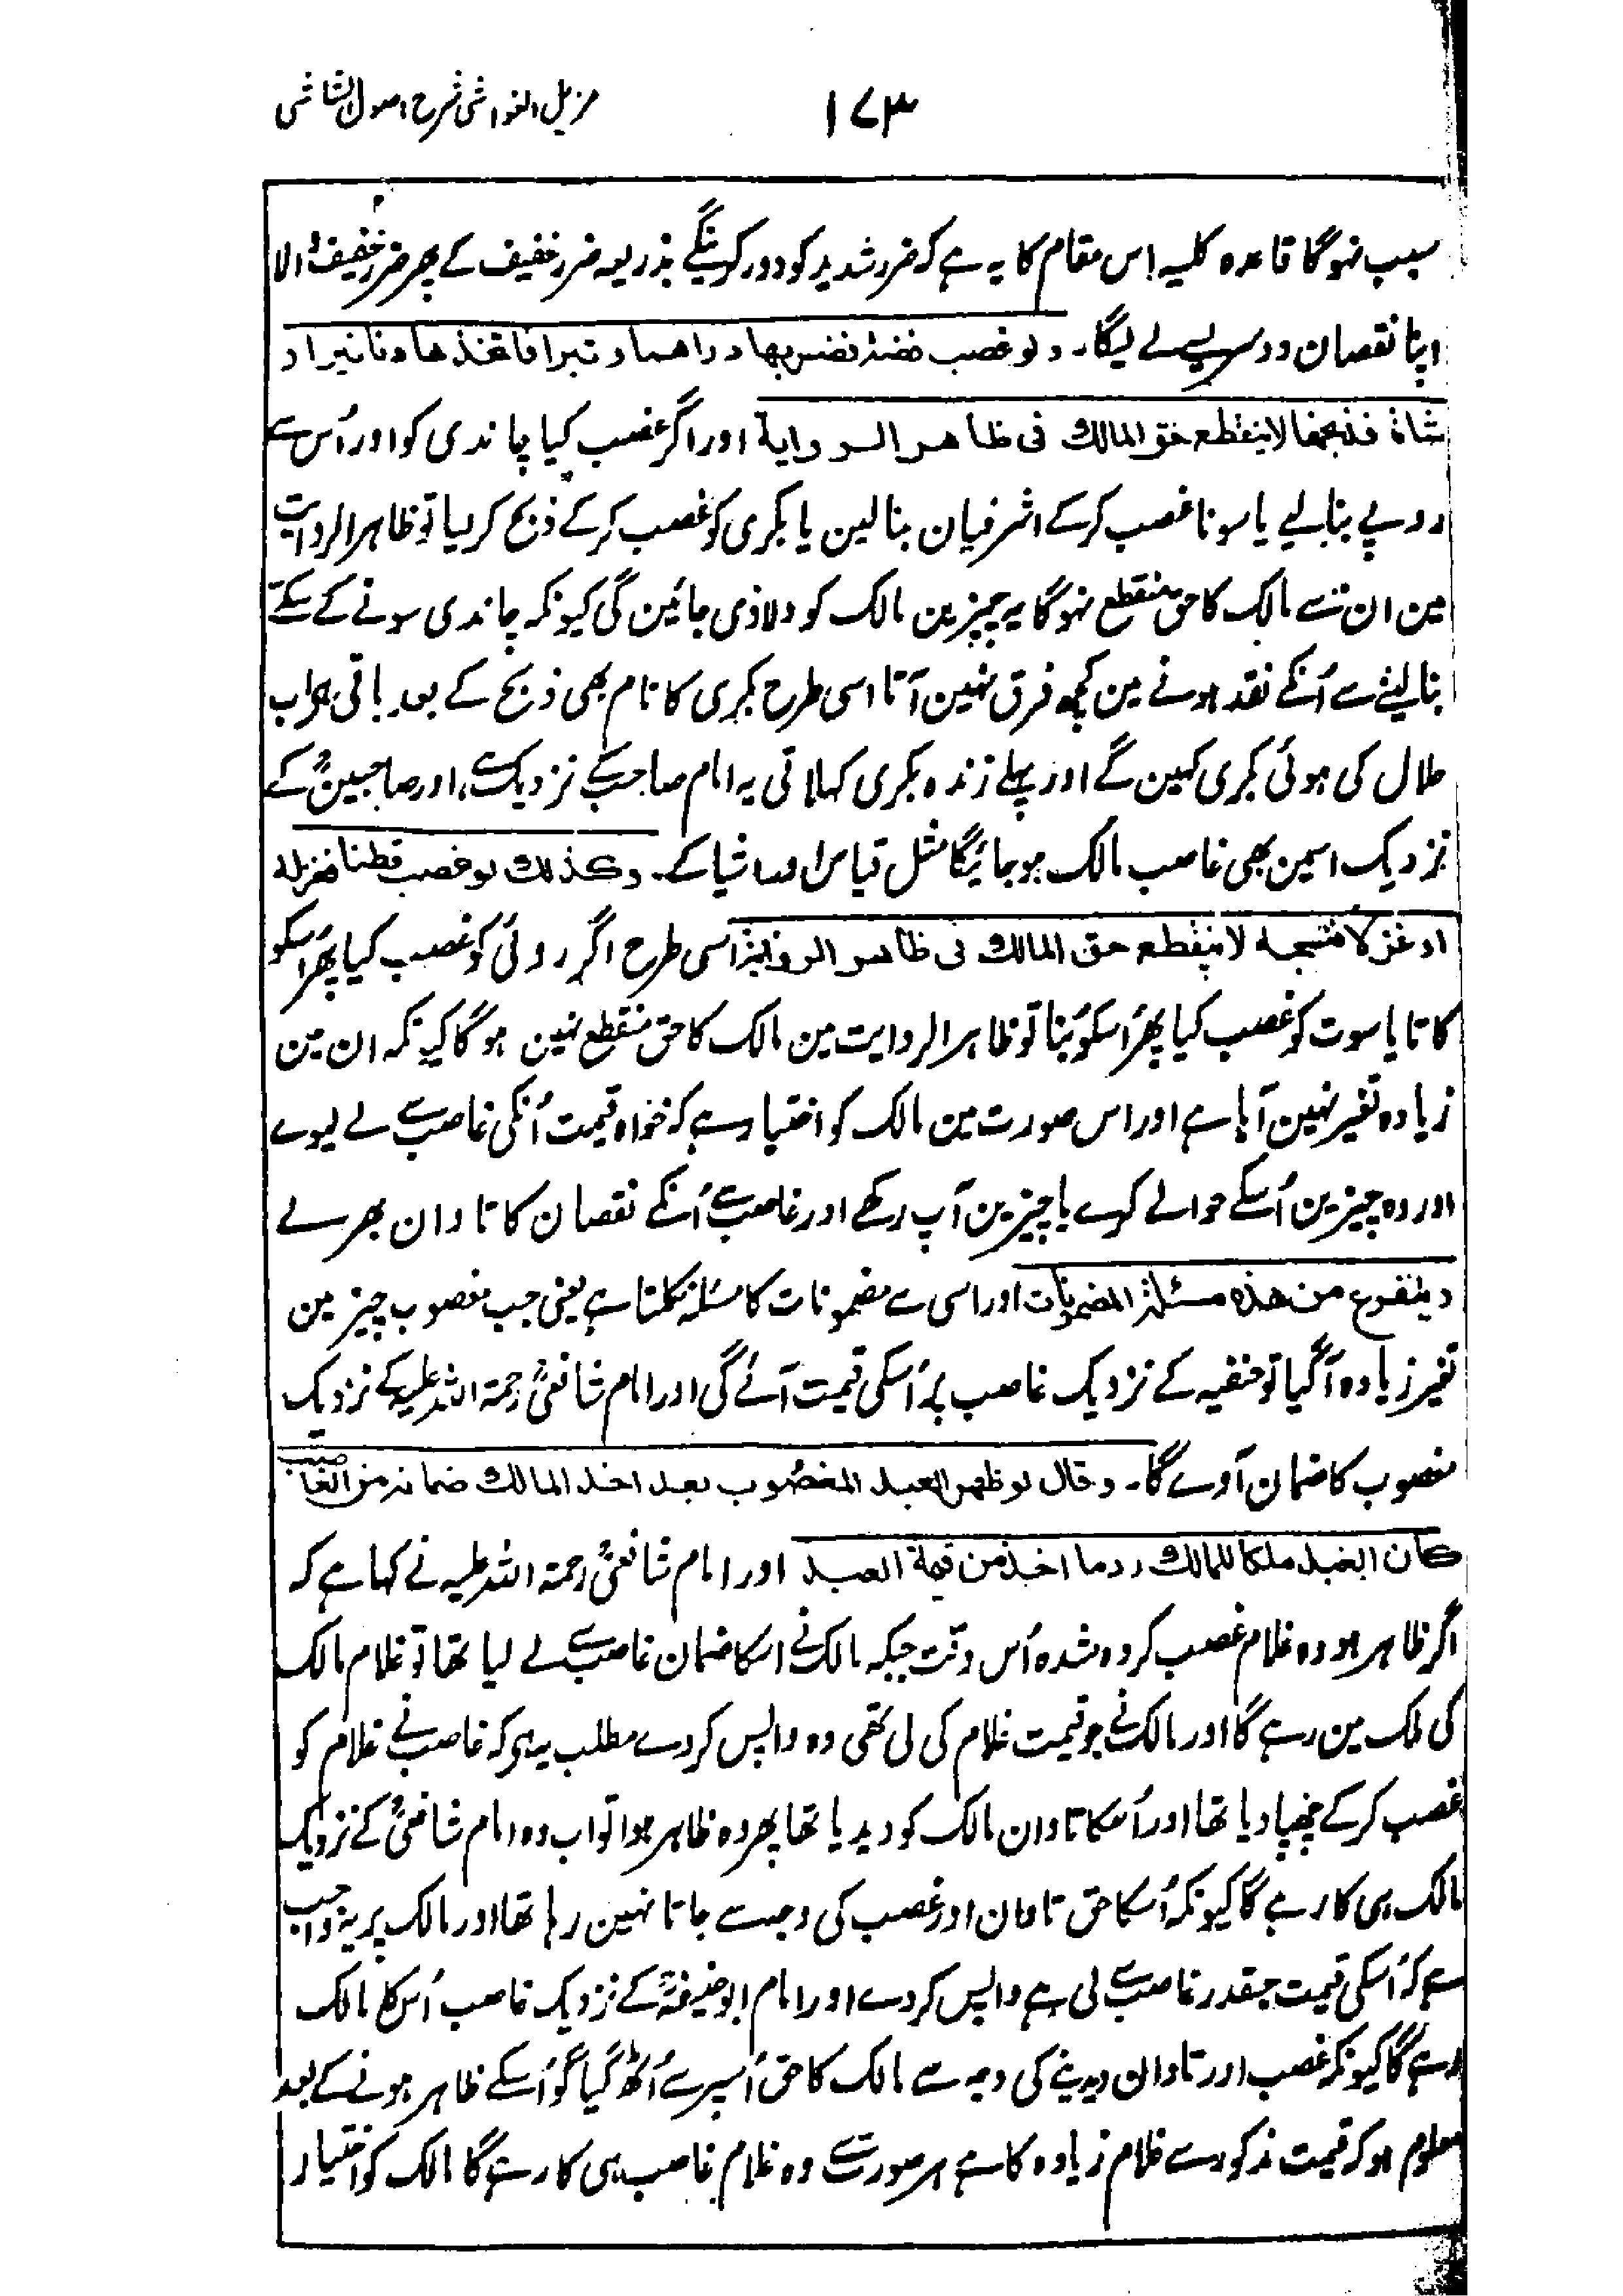 ۱۷۳ مزیل الغواشی شرح اصول الشاشی
سبب نہوگا قاعدہ کلیہ اس مقام کا یہ ہے کہ ضرر شدید کو دور کرینگے بذریعہ ضرر خفیف کے پھر ضرر خفیف والا
اپنا نقصان دوسرے سے لے لیگا۔ ولو غصب فضۃ فضربہا دراھما وتبرا فاتخذھا دنانیرا و
شاۃ فذبحھا لاینقطع حق المالک فی ظاھر الروایۃ اور اگر غصب کیا چاندی کو اور اُس سے
روپے بنالیے یا سونا غصب کرکے اشرفیان بنالین یا بکری کو غصب کرکے ذبح کرلیا تو ظاہر الروایت
مین ان سے مالک کا حق منقطع نہوگا یہ چیزین مالک کو دلادی جائین گی کیونکہ چاندی سونے کے سکے
بنالینے سے اُنکے نقد ہونے مین کچھ فرق نہین آتا اسی طرح بکری کا نام بھی ذبح کے بعد باقی ہے اب
حلال کی ہوئی بکری کہین گے اور پہلے زندہ بکری کہلاتی یہ امام صاحب کے نزدیک ہے اور صاحبینؒ کے
نزدیک اسمین بھی غاصب مالک ہوجائیگا مثل قیاس اور اشیا کے۔ وکذلک لو غصب قطنا فغزلہ
او غزلا فنسجہ لا ینقطع حق المالک فی ظاھر الروایۃ اسی طرح اگر روئی کو غصب کیا پھر اُسکو
کاتا یا سوت کو غصب کیا پھر اُسکو بُنا تو ظاہر الروایت مین مالک کا حق منقطع نہین ہوگا کیونکہ ان مین
زیادہ تغیر نہین آیا ہے اور اس صورت مین مالک کو اختیار ہے کہ خواہ قیمت اُنکی غاصب سے لے لیوے
اور وہ چیزین اُسکے حوالے کرے یا چیزین آپ رکھے اور غاصب سے اُنکے نقصان کا تاوان بھر لے
ویتفرع من ھذہ مسئلۃ المضمونات اور اسی سے مضمونات کا مسئلہ نکلتا ہے یعنی جب مغصوب چیز مین
تغیر زیادہ آگیا تو حنفیہ کے نزدیک غاصب پر اُسکی قیمت آئے گی اور امام شافعیؒ رحمۃ اللہ علیہ کے نزدیک
مغصوب کا ضمان آوے گا۔ وقال لو ظھر العبد المغصوب بعد اخذ المالک ضمانہ من الغاصب
کان العبد ملکا للمالک رد ما اخذ من قیمۃ العبد اور امام شافعیؒ رحمۃ اللہ علیہ نے کہا ہے کہ
اگر ظاہر ہو وہ غلام غصب کردہ شدہ اُس وقت جبکہ مالک نے اسکا ضمان غاصب سے لے لیا تھا تو غلام مالک
کی ملک مین رہے گا اور مالک نے جو قیمت غلام کی لی تھی وہ واپس کردے مطلب یہ ہی کہ غاصب نے غلام کو
غصب کرکے چھپا دیا تھا اور اُسکا تاوان مالک کو دیدیا تھا پھر وہ ظاہر ہوا تو اب وہ امام شافعیؒ کے نزدیک
مالک ہی کا رہے گا کیونکہ اُسکا حق تاوان اور غصب کی وجہ سے جاتا نہین رہا تھا اور مالک پر یہ واجب
ہے کہ اُسکی قیمت جقدر غاصب سے لی ہے واپس کردے اور امام ابوحنیفہؒ کے نزدیک غاصب اُس کا مالک
رہے گا کیونکہ غصب اور تاوان دیدینے کی وجہ سے مالک کا حق اُسپر سے اُٹھ گیا گو اُسکے ظاہر ہونے کے بعد
معلوم ہو کہ قیمت مذکور سے غلام زیادہ کا ہے ہر صورت سے وہ غلام غاصب ہی کا رہے گا مالک کو اختیار